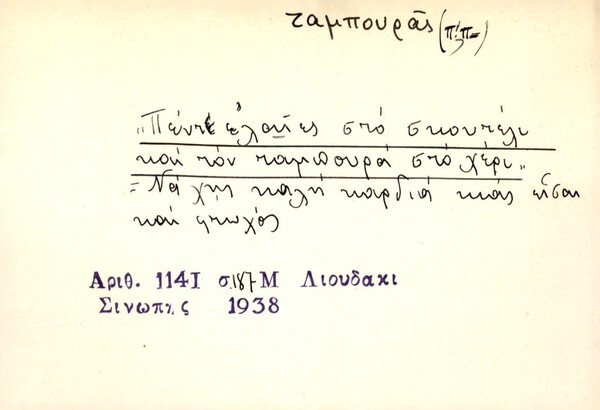 ταμπουρᾶς
„Πέντε ἐλαῖες στὸ σκουτέλι
καὶ τὸν ταμπουρᾶ στὸ χέρι„
= Νά χῃς καλὴ καρδιὰ κι ἂς εἶσαι
καὶ φτωχός
Αριθ. 1141 σ.187 Μ Λιουδακι
Σινωπης 1938